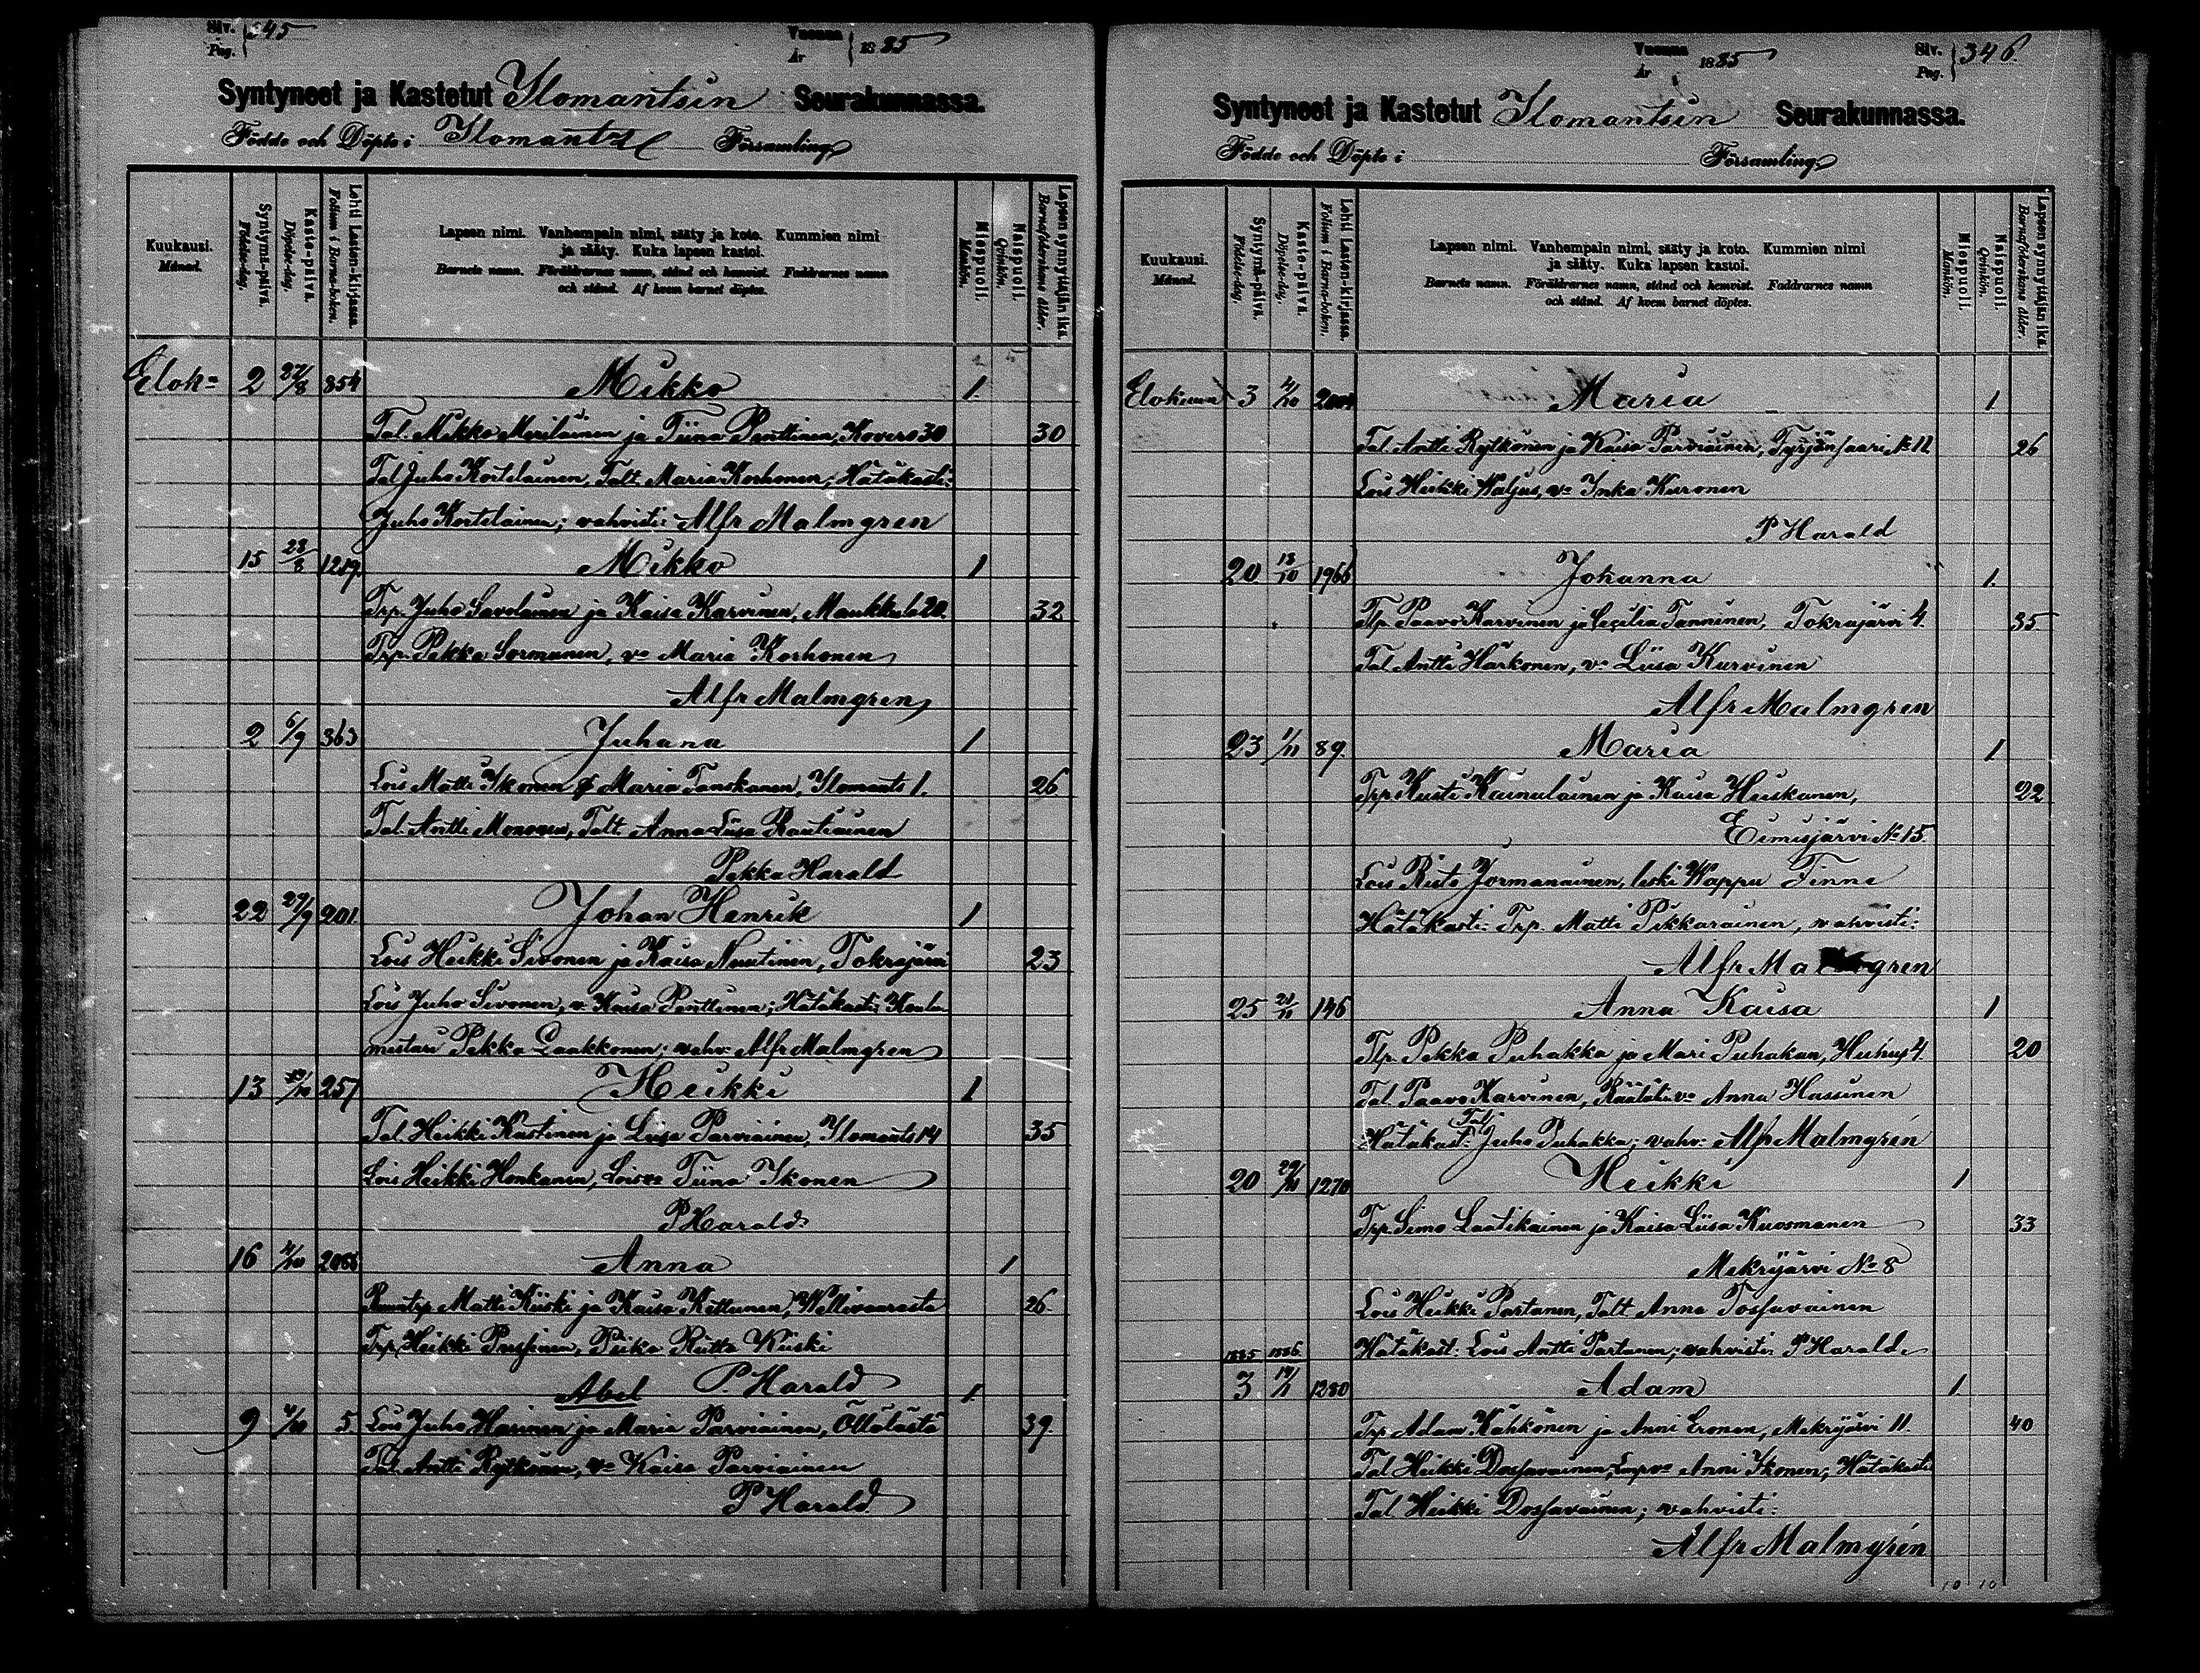 Siv. Pag. 345
Vuonna År 1885
Syntyneet ja Kastetut Ilomantsin Seurakunnassa.
Födde och Döpte i Ilomants Församling
Kuukausi. Månad.
Syntymä-päivä. Födelse-dag.
Kaste-päivä. Döpelse-dag.
Lehti Lasten-kirjassa. Folium i Barna-boken.
Lapsen nimi. Vanhempain nimi, sääty ja koto. Kummien nimi
ja sääty. Kuka lapsen kastoi.
Barnets namn. Föräldrarnes namn, stånd och hemvist. Faddrarnes namn
och stånd. Af hvem barnet döptes.
Miespuoli. Mankön.
Naispuoli. Qvinkön.
Lapsen synnyttäjän ikä. Barnaföderskans ålder.
Elok= 2 27/8 854 Mikko 1
Tal. Mikko Meriläinen ja Tiina Penttinen, Kovero 30 30
Tal Juho Kortelainen, Talt. Maria Korhonen; Hätäkasti:
Juho Kortelainen; vahvisti: Alfr Malmgren
15 23/8 1219. Mikko 1
Trp. Juho Savolainen ja Kaisa Karvinen, Maukkula 20. 32
Trp. Pekka Sormunen, vo Maria Korhonen
Alfr Malmgren
2 6/9 363 Juhana 1
Lois Matti Ikonen & Maria Tanskanen, Ilomants 1. 26
Tal. Antti Mononen, Talt. Anna Liisa Rautiainen
Pekka Harald
22 27/9 201. Johan Henrik 1
Lois Heikki Sivonen ja Kaisa Nuutinen, Tokrajärvi 23
Lois Juho Sivonen, v. Kaisa Penttinen; Hätäkasti: Koulu-
mestari Pekka Laakkonen; vahv: Alfr Malmgren
13 /10 257 Heikki 1
Tal. Heikki Kastinen ja Liisa Parviainen, Ilomants 14 35
Lois Heikki Honkanen, Lois vo Tiina Ikonen
P Harald
16 4/10 Anna 1
Matti Kiiski ja Kaisa Kettunen, Wellivaarasta 26.
Trp. Heikki Pussinen, Piika Riitta Kiiski
P. Harald
Abel 1
9 4/10 5. Lois Juho Harinen ja Maria Parviainen, Öllölästä 39.
Tal. Antti Rytkönen, vo Kaisa Parviainen
P Harald
Vuonna År 1885
Siv. Pag. 346.
Syntyneet ja Kastetut Ilomantsin Seurakunnassa.
Födde och Döpte i Församling
Kuukausi. Månad.
Syntymä-päivä. Födelse-dag.
Kaste-päivä. Döpelse-dag.
Lehti Lasten-kirjassa. Folium i Barna-boken.
Lapsen nimi. Vanhempain nimi, sääty ja koto. Kummien nimi
ja sääty. Kuka lapsen kastoi.
Barnets namn. Föräldrarnes namn, stånd och hemvist. Faddrarnes namn
och stånd. Af hvem barnet döptes.
Miespuoli. Mankön.
Naispuoli. Qvinkön.
Lapsen synnyttäjän ikä. Barnaföderskans ålder.
Elokuun 3 4/10 Maria 1
Tal. Antti Rytkönen ja Kaisa Parviainen, Tyrjänsaari No 12 26
Lois Heikki Waljus, vo Inka Kuronen
P Harald
20 18/10 1966 Johanna 1.
Tlp. Paavo Karvinen ja Cecilia Tanninen, Tokrajärvi 4. 35.
Tal Antti Härkönen, vo Liisa Kurvinen
Alfr Malmgren
23 1/11 89. Maria 1
Trp Kusti Kainulainen ja Kaisa Huiskanen, 22
Eimisjärvi No 15.
Lois Risto Jormanainen, leski Wappu Tinni
Hätäkasti: Trp. Matti Pikkarainen, vahvisti:
Alfr Malmgren
25 21/10 146 Anna Kaisa 1
Tlp. Pekka Puhakka ja Mari Puhakan, Huhus 4. 20
Tal. Paavo Karvinen, Räätäli vo Anna Hassinen
Hätäkast: Tal. Juho Puhakka; vahv: Alfr Malmgrén
20 29/ 1270 Heikki 1
Trp. Simo Laatikainen ja Kaisa Liisa Kuosmanen 33
Mekrijärvi No 8
Lois Heikki Partanen, Talt. Anna Tossavainen
Hätäkast: Lois Antti Partanen; vahvisti: P Harald.
1885 1886
3 19/1 1280 Adam 1
Trp Adam Kähkönen ja Anni Eronen, Mekrijärvi 11. 40
Tal Heikki Dossavainen, vo Anni Ikonen; Hätäkasti
Tal Heikki Dossavainen; vahvisti:
Alfr Malmgrén
10 10